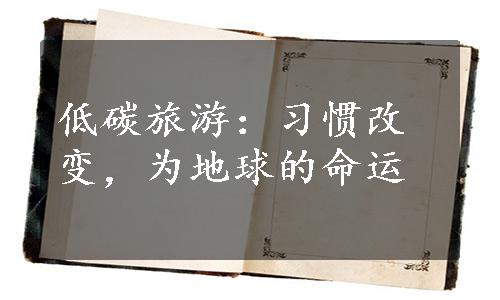 低碳旅游：习惯改
变，为地球的命运